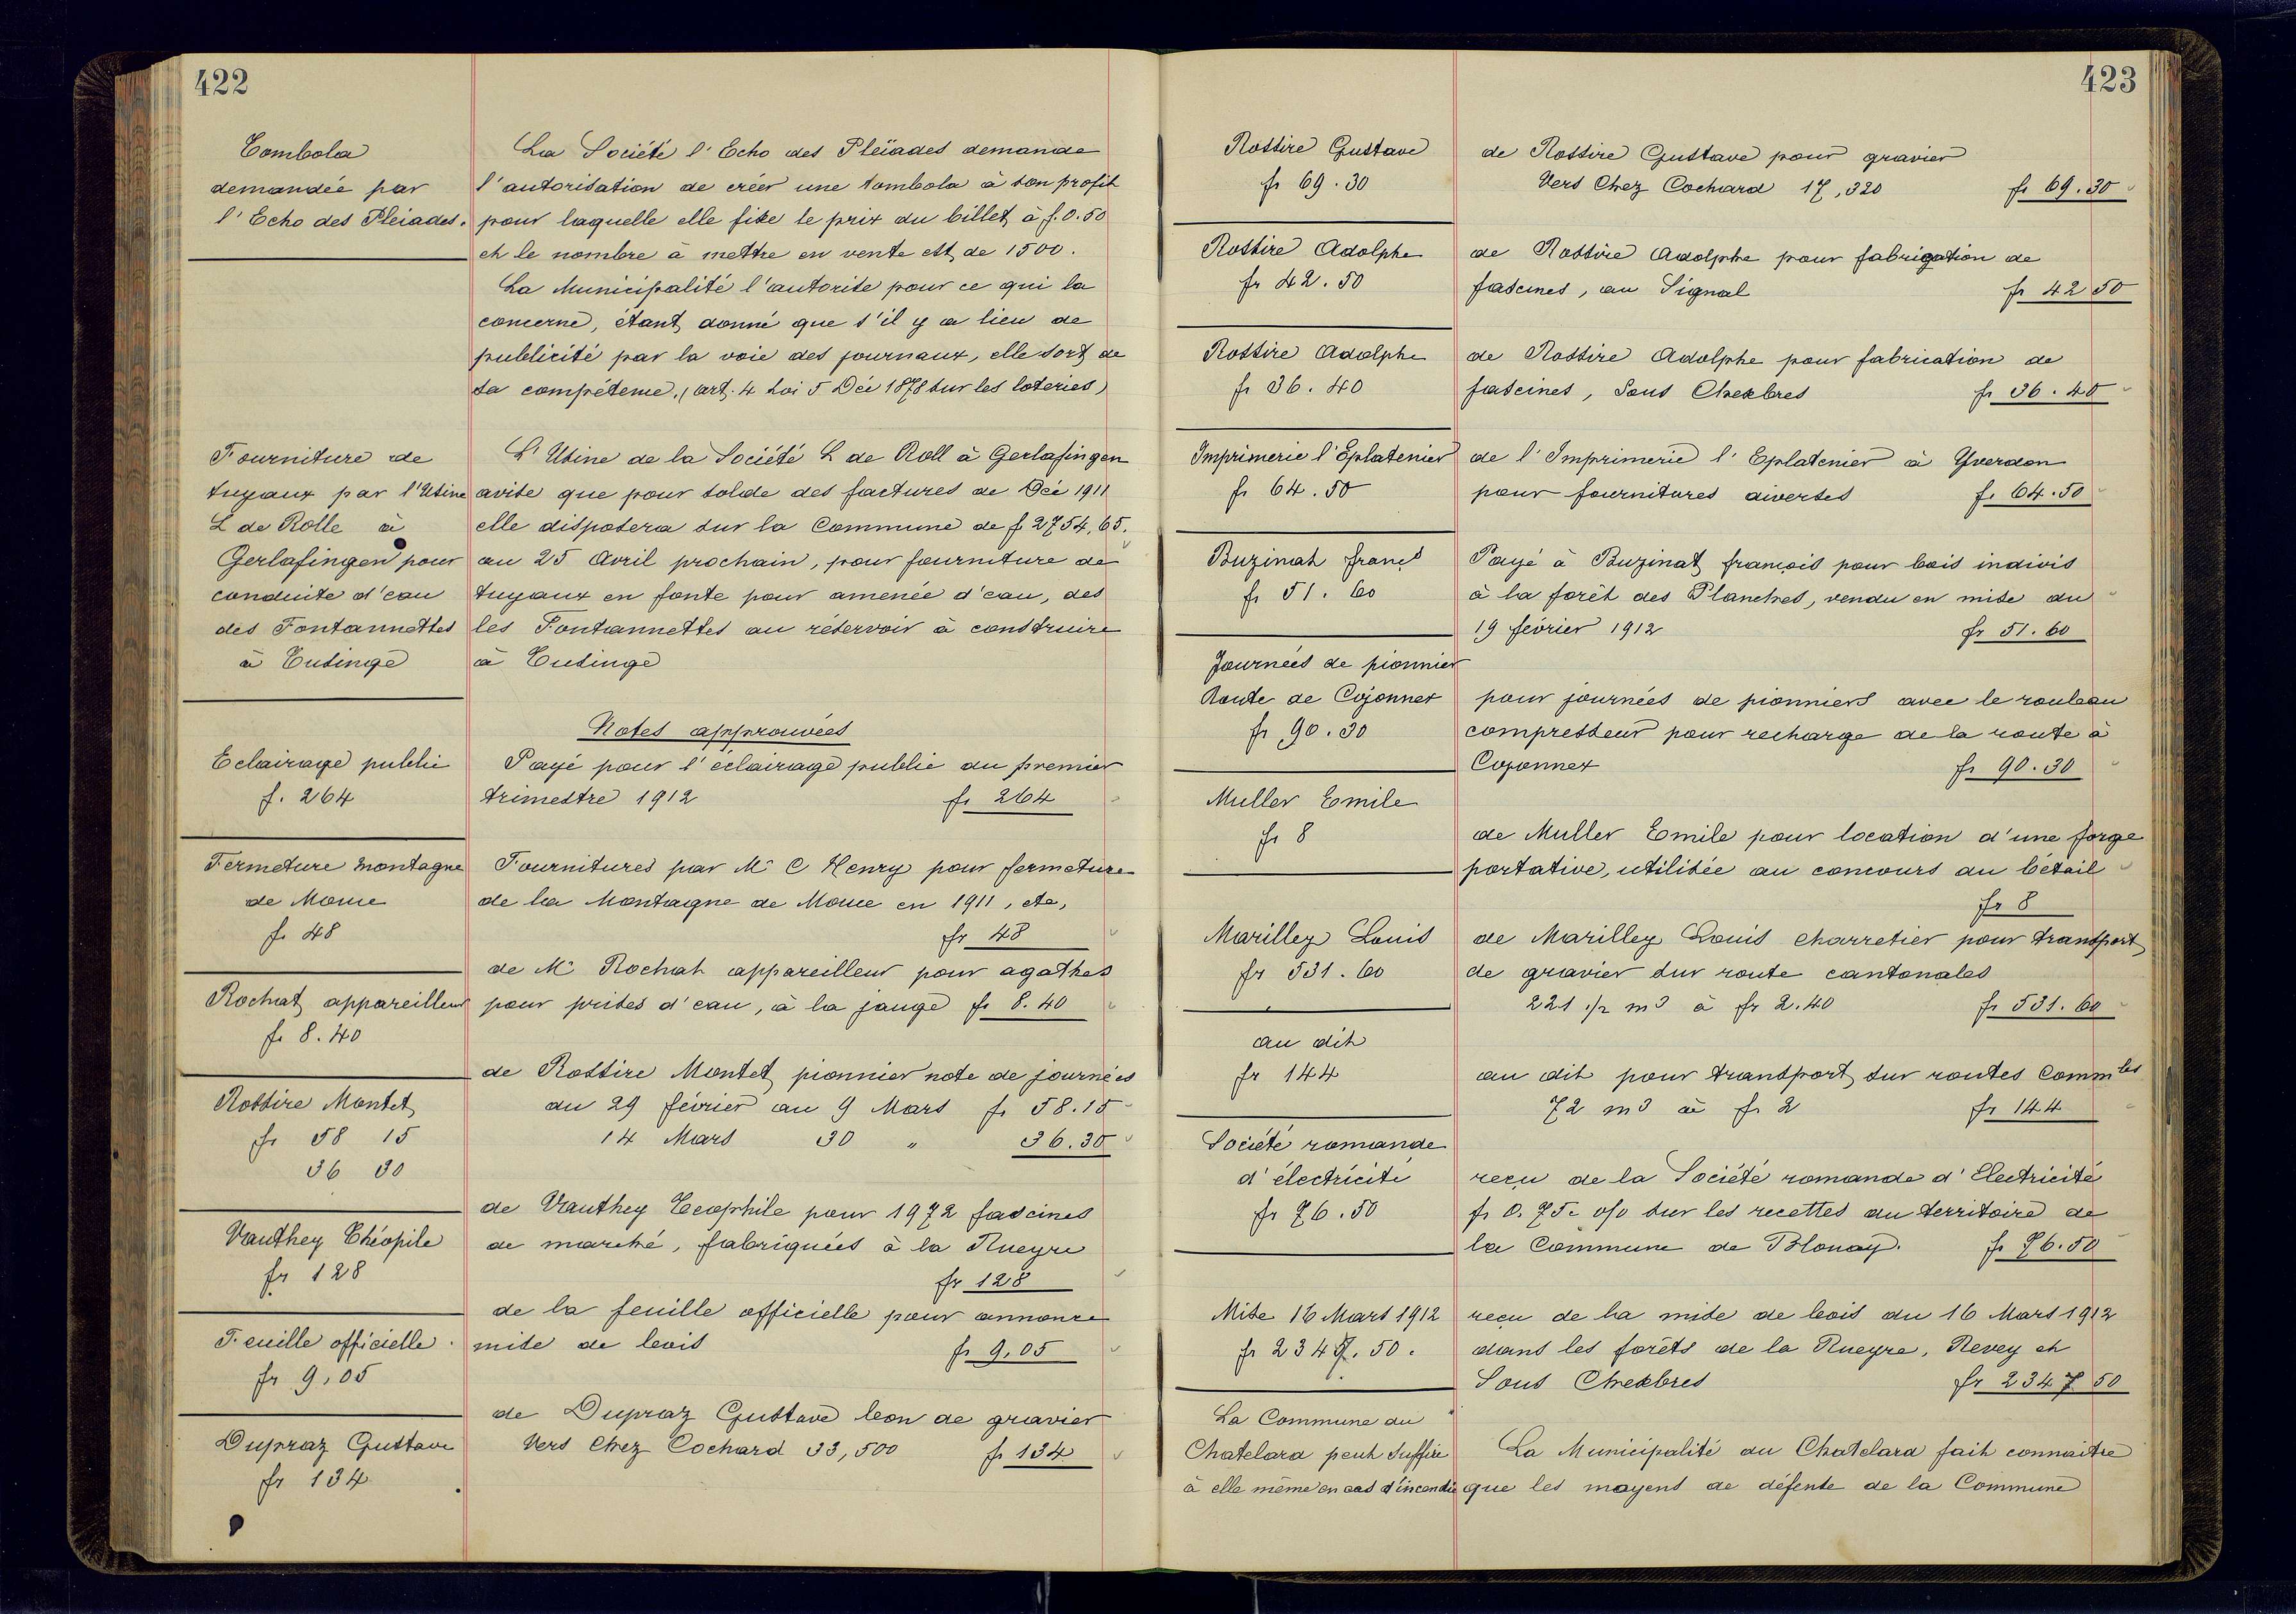 422
Tombola
demandée par
l'Echo des Pleiades.
La Société l'Echo des Pleïades demande
l'autorisation de créer une tombola à son profit
pour laquelle elle fixe le prix du billet à f. 0.50
et le nombre à mettre en vente est de 1500.
La Municipalité l'autorise pour ce qui la
concerne, étant donné que s'il y a lieu de
publicité par la voie des journaux, elle sort de
sa compétence, (art. 4 Loi 5 Déc 1878 sur les loteries)
Fourniture de
tuyaux par l'Usine
L de Rolle à
Gerlafingen pour
conduite d'eau
des Fontannettes
à Tusinge
L'Usine de la Société L de Roll à Gerlafingen
avise que pour solde des factures de Déc 1911
elle disposera sur la Commune de f 2754,65.
au 25 Avril prochain, pour fourniture de
tuyaux en fonte pour amenée d'eau, des
les Fontannettes au réservoir à construire
à Tusinge
Notes approuvées
Eclairage public
f. 264
Payé pour l'éclairage public du premier
trimestre 1912 fr 264
Fermeture montagne
de Mouie
fr 48
Fournitures par Mr C Henry pour fermeture
de la Montagne de Mouie en 1911, etc,
fr 48
Rochat appareilleur
fr 8.40
de Mr Rochat appareilleur pour agathes
pour prises d'eau, à la jauge fr 8.40
Rossire Montet
fr 58 15
36 30
de Rossire Montet pionnier note de journées
du 29 février au 9 Mars fr 58.15
14 Mars 30 " 36.30
Vauthey Théopile
fr 128
de Vauthey Teophile pour 1972 fascines
de marché, fabriquées à la Rueyre
fr 128
Feuille officielle
fr 9,05
de la feuille officielle pour annonce
mise de bois fr 9,05
Dupraz Gustave
fr 134
de Dupraz Gustave bon de gravier
Vers Chez Cochard 33,500 fr 134
423
Rossire Gustave
fr 69.30
de Rossire Gustave pour gravier
Vers Chez Cochard 17,320 fr 69.30
Rossire Adolphe
fr 42.50
de Rossire Adolphe pour fabrigation de
fascines, au Signal fr 42 50
Rossire Adolphe
fr 36.40
de Rossire Adolphe pour fabrication de
fascines, Sous Chexbres fr 36.40
Imprimerie l'Eplatenier
fr 64.50
de l'Imprimerie l'Eplatenier à Yverdon
pour fournitures diverses fr 64.50
Buzinat françs
fr 51.60
Payé à Buzinat francois pour bois indivis
à la forêt des Planches, vendu en mise du
19 février 1912 fr 51.60
Journées de pionnier
Route de Cojonnex
fr 90.30
pour journées de pionniers avec le rouleau
compresseur pour recharge de la route à
Cojonnex fr 90.30
Muller Emile
fr 8
de Muller Emile pour location d'une forge
portative, utilisée au concours du bétail
fr 8
Marilley Louis
fr 531.60
de Marilley Louis charretier pour transport
de gravier sur route cantonales
221 1/2 m3 à fr 2.40 fr 531.60
au dit
fr 144
au dit pour transport sur routes Commles
72 m3 à fr 2 fr 144
Société romande
d'électricité
fr 76.50
reçu de la Société romande d'Electricité
fr 0.75c o/o sur les recettes du territoire de
la Commune de Blonay. fr 76.50
Mise 16 Mars 1912
fr 2347.50.
reçu de la mise de bois du 16 Mars 1912
dans les forêts de la Rueyre, Revey et
Sous Chexbres fr 2347 50
La Commune du
Chatelard peut suffire
à elle même en cas d'incendie
La Municipalité du Chatelard fait connaitre
que les moyens de défense de la Commune